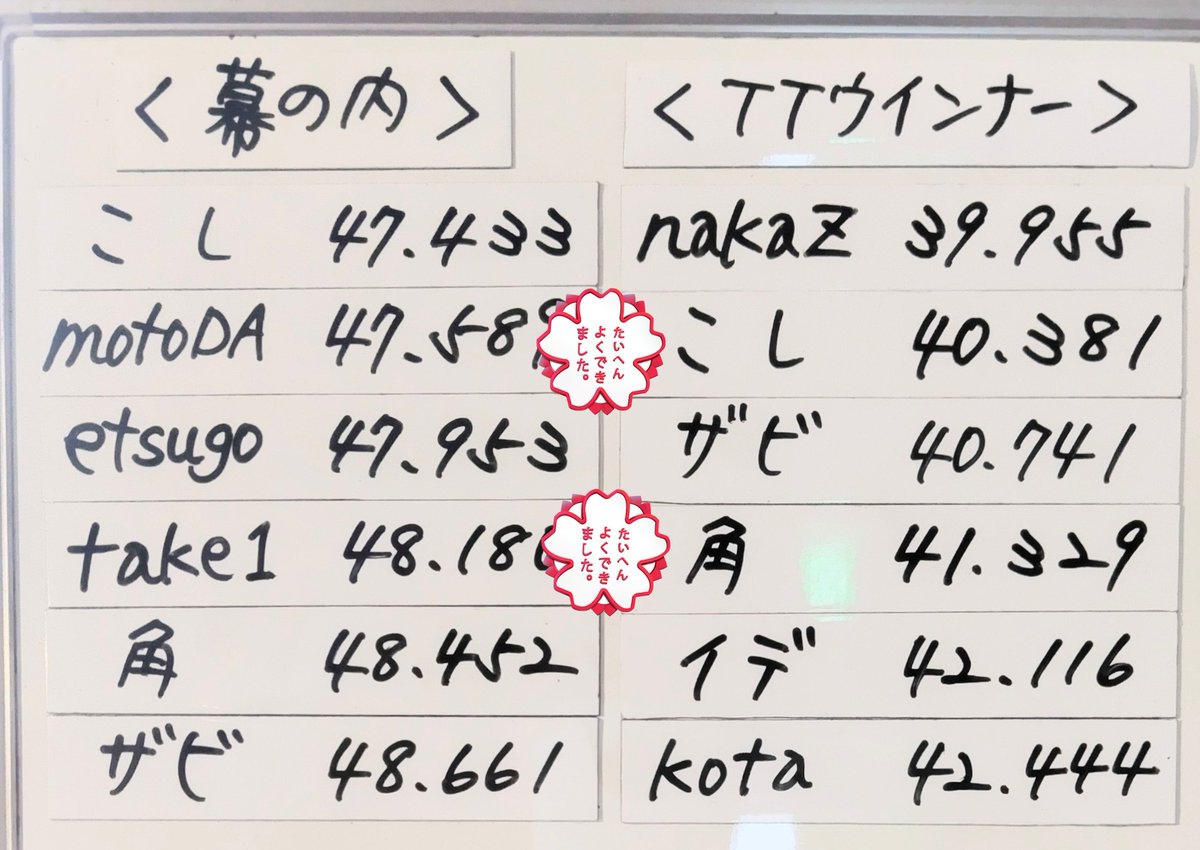 ＜幕の内＞
こし 47.433
motoDA 47.589
etsugo 47.953
take1 48.18
角 48.452
ザビ 48.661
＜TTウインナー＞
nakaZ 39.955
こし 40.381
ザビ 40.741
角 41.329
イデ 42.116
kota 42.444
たいへん
よくでき
ました。
たいへん
よくでき
ました。